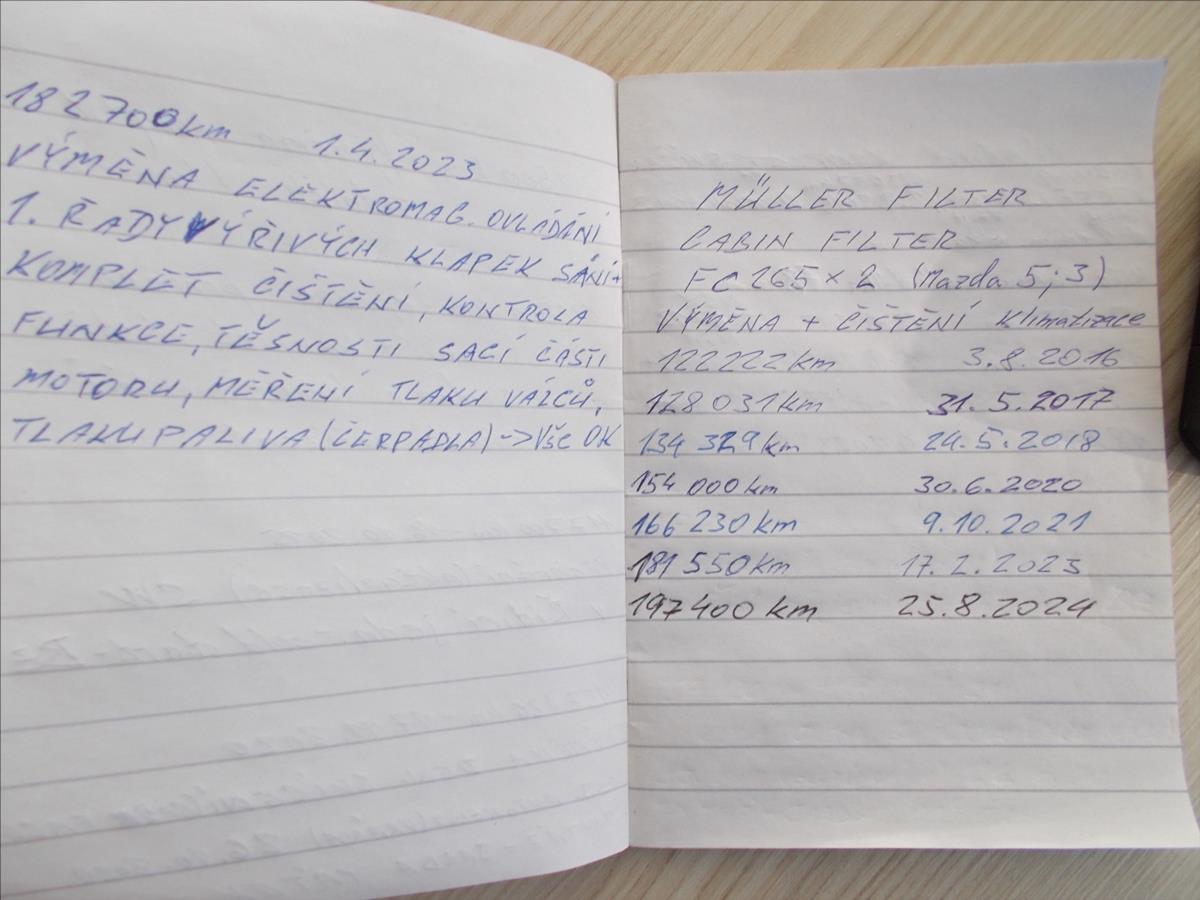 182700km 1.4.2023
VÝMĚNA ELEKTROMAG. OVLÁDÁNÍ
1. ŘADY VÝŘIVÝCH KLAPEK SÁNÍ+
KOMPLET ČIŠTĚNÍ, KONTROLA
FUNKCE, TĚSNOSTI SACÍ ČÁSTI
MOTORU, MĚŘENÍ TLAKU VÁLCŮ,
TLAKU PALIVA (ČERPADLA) -> Vše OK
MÜLLER FILTER
CABIN FILTER
FC 265 × 2 (Mazda 5; 3)
VÝMĚNA + ČIŠTĚNÍ klimatizace
122222 km 3.8.2016
128 031 km 31.5.2017
134 329 km 24.5.2018
154 000 km 30.6.2020
166 230 km 9.10.2021
181 550 km 17.2.2023
197400 km 25.8.2024